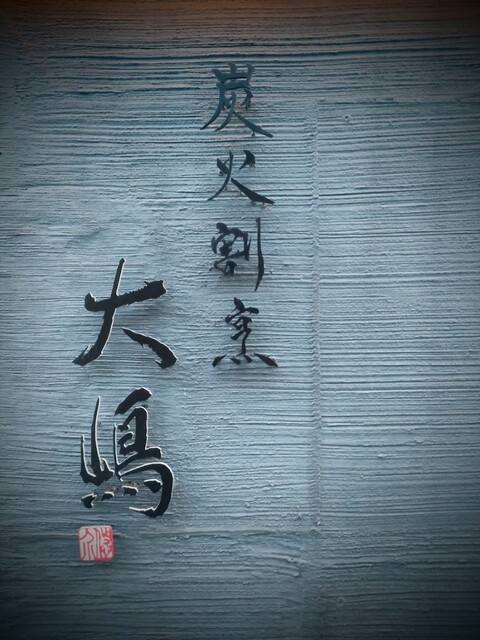 炭火割烹
大嶋